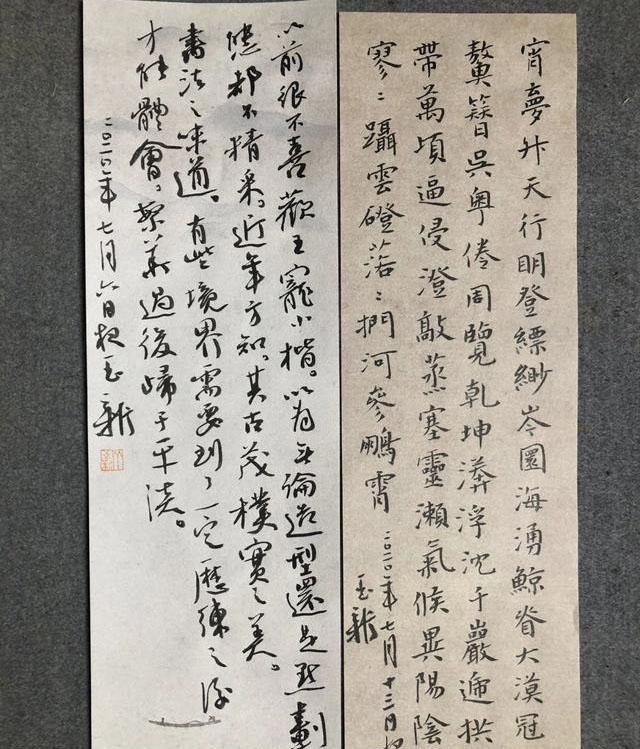 宵夢升天行明登縹緲岑圜海湧鯨脊大漠冠
鼇簪吳粵倦周覽乾坤漭浮沈千巖遞拱
帶萬頃逼侵澄敲蒸塞靈瀨氣候異陽陰
寥〻躡雲磴落〻捫河參鵬霄 二〇二〇年七月十三日
玉新
以前很不喜歡王寵小楷。以為無論造型還是點劃
態都不精采。近年方知。其古茂樸實之美。
書法之味道。有些境界需要到了一定歷練之後
才能體會。繁華過後歸于平淡。
二〇二〇年七月六日夜玉新